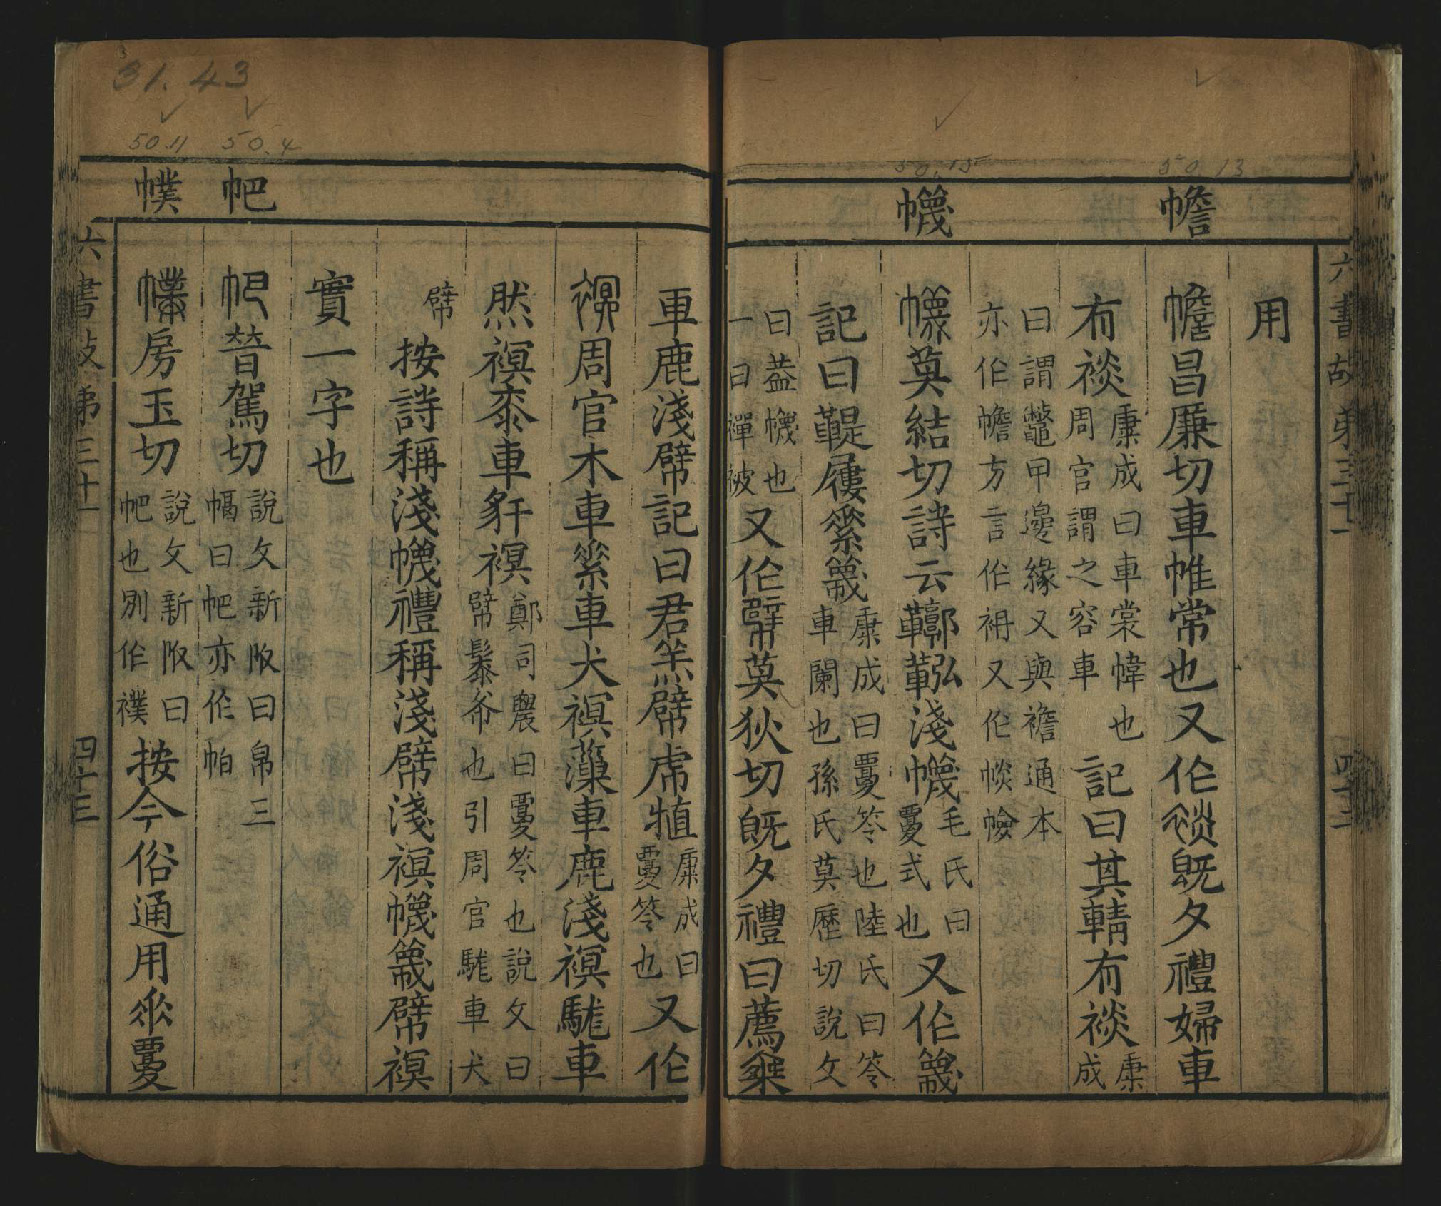 50.13
50.15
幨
幭
六書故弟三十一
四十二
用
幨昌廉切車帷常也又作裧旣夕禮婦車
有裧康成曰車裳幃也周官謂之容車記曰其輤有裧康成
曰謂鼈甲邊緣又與襜通本亦作幨方言作袡又作㡘㡩
幭莫結切詩云鞹鞃淺幭毛氏曰覆式也又作䈼
記曰鞮屨素䈼康成曰覆笭也陸氏曰笭車闌也孫氏莫歷切說文
曰葢幭也一曰襌被又作幦莫狄切旣夕禮曰薦乘
31.43
50.4
50.11
帊
幞
車鹿淺幦記曰君羔幦虎犆康成曰覆笭也又作
𧜀周官木車素車犬禩薻車鹿淺禩駹車
然禩桼車豻禩鄭司農曰覆笭也說文曰幦鬃布也引周官駹車犬
幦按詩稱淺幭禮稱淺幦淺禩幭䈼幦禩
實一字也
帊普駕切說文新附曰帛三幅曰帊亦作帕
幞房玉切說文新附曰帊也別作襆按今俗通用爲覆
六書故弟三十一
四十三